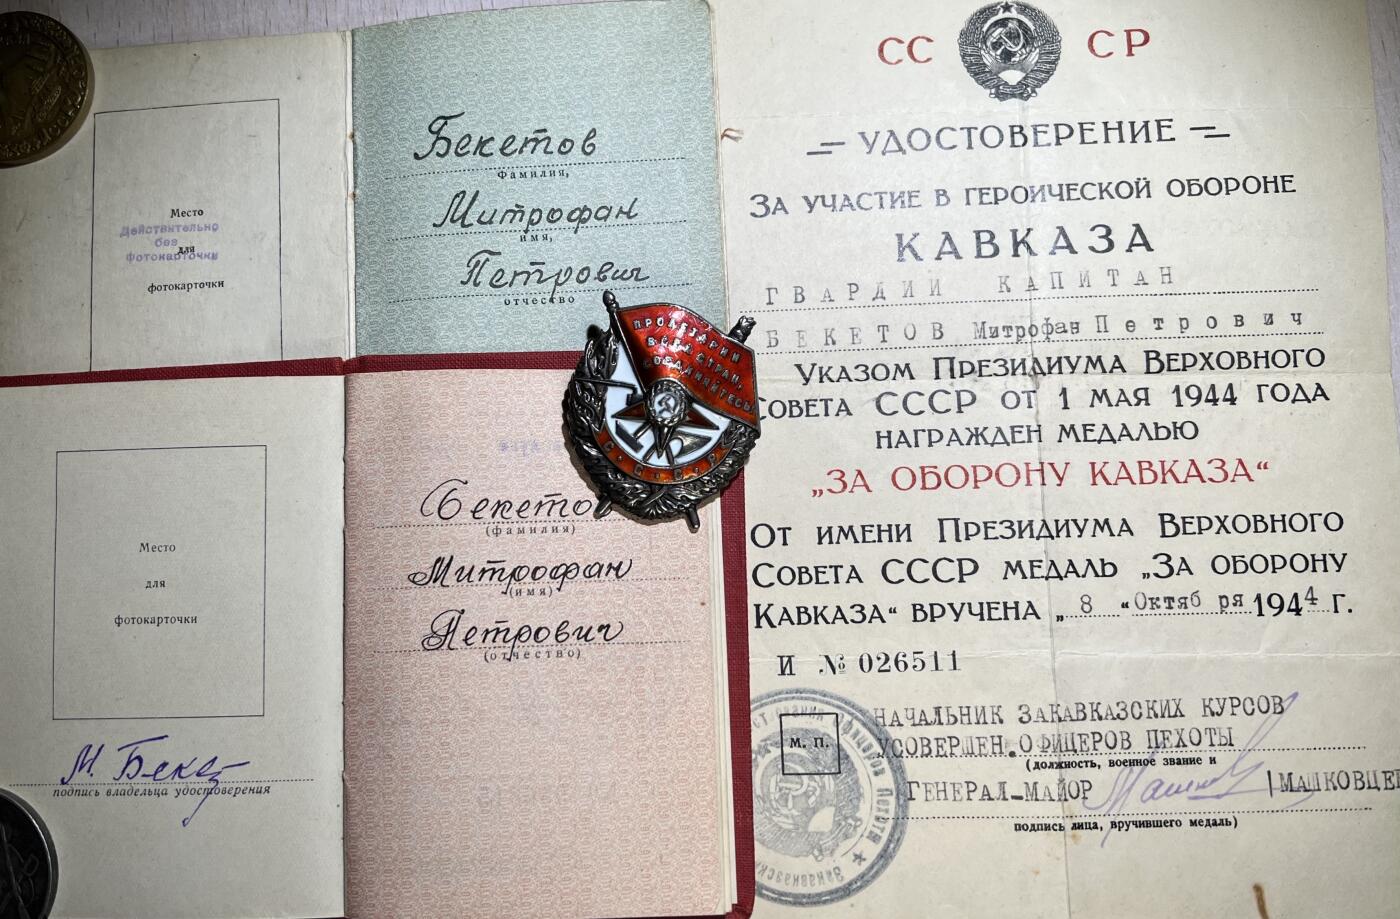 Место
Действительно
без
для
фотокарточки
фотокарточки
Бекетов
Фамилия,
Митрофан
имя,
Петрович
отчество
Место
для
фотокарточки
М. Бекет
подпись владельца удостоверения
Бекетов
(фамилия)
Митрофан
(имя)
Петрович
(отчество)
ПРОЛЕТАРИИ
ВСЕХ СТРАН,
СОЕДИНЯЙТЕСЬ!
С·С·С·Р
СССР
УДОСТОВЕРЕНИЕ
ЗА УЧАСТИЕ В ГЕРОИЧЕСКОЙ ОБОРОНЕ
КАВКАЗА
ГВАРДИИ КАПИТАН
БЕКЕТОВ Митрофан Петрович
УКАЗОМ ПРЕЗИДИУМА ВЕРХОВНОГО
СОВЕТА СССР ОТ 1 МАЯ 1944 ГОДА
НАГРАЖДЕН МЕДАЛЬЮ
„ЗА ОБОРОНУ КАВКАЗА“
ОТ ИМЕНИ ПРЕЗИДИУМА ВЕРХОВНОГО
СОВЕТА СССР МЕДАЛЬ „ЗА ОБОРОНУ
КАВКАЗА“ ВРУЧЕНА „8“ Октября 1944 Г.
И № 026511
НАЧАЛЬНИК ЗАКАВКАЗСКИХ КУРСОВ
УСОВЕРШЕН.ОФИЦЕРОВ ПЕХОТЫ
М. П.
(должность, военное звание и
ГЕНЕРАЛ-МАЙОР /МАШКОВЦЕ
подпись лица, вручившего медаль)
офицеров пехоты